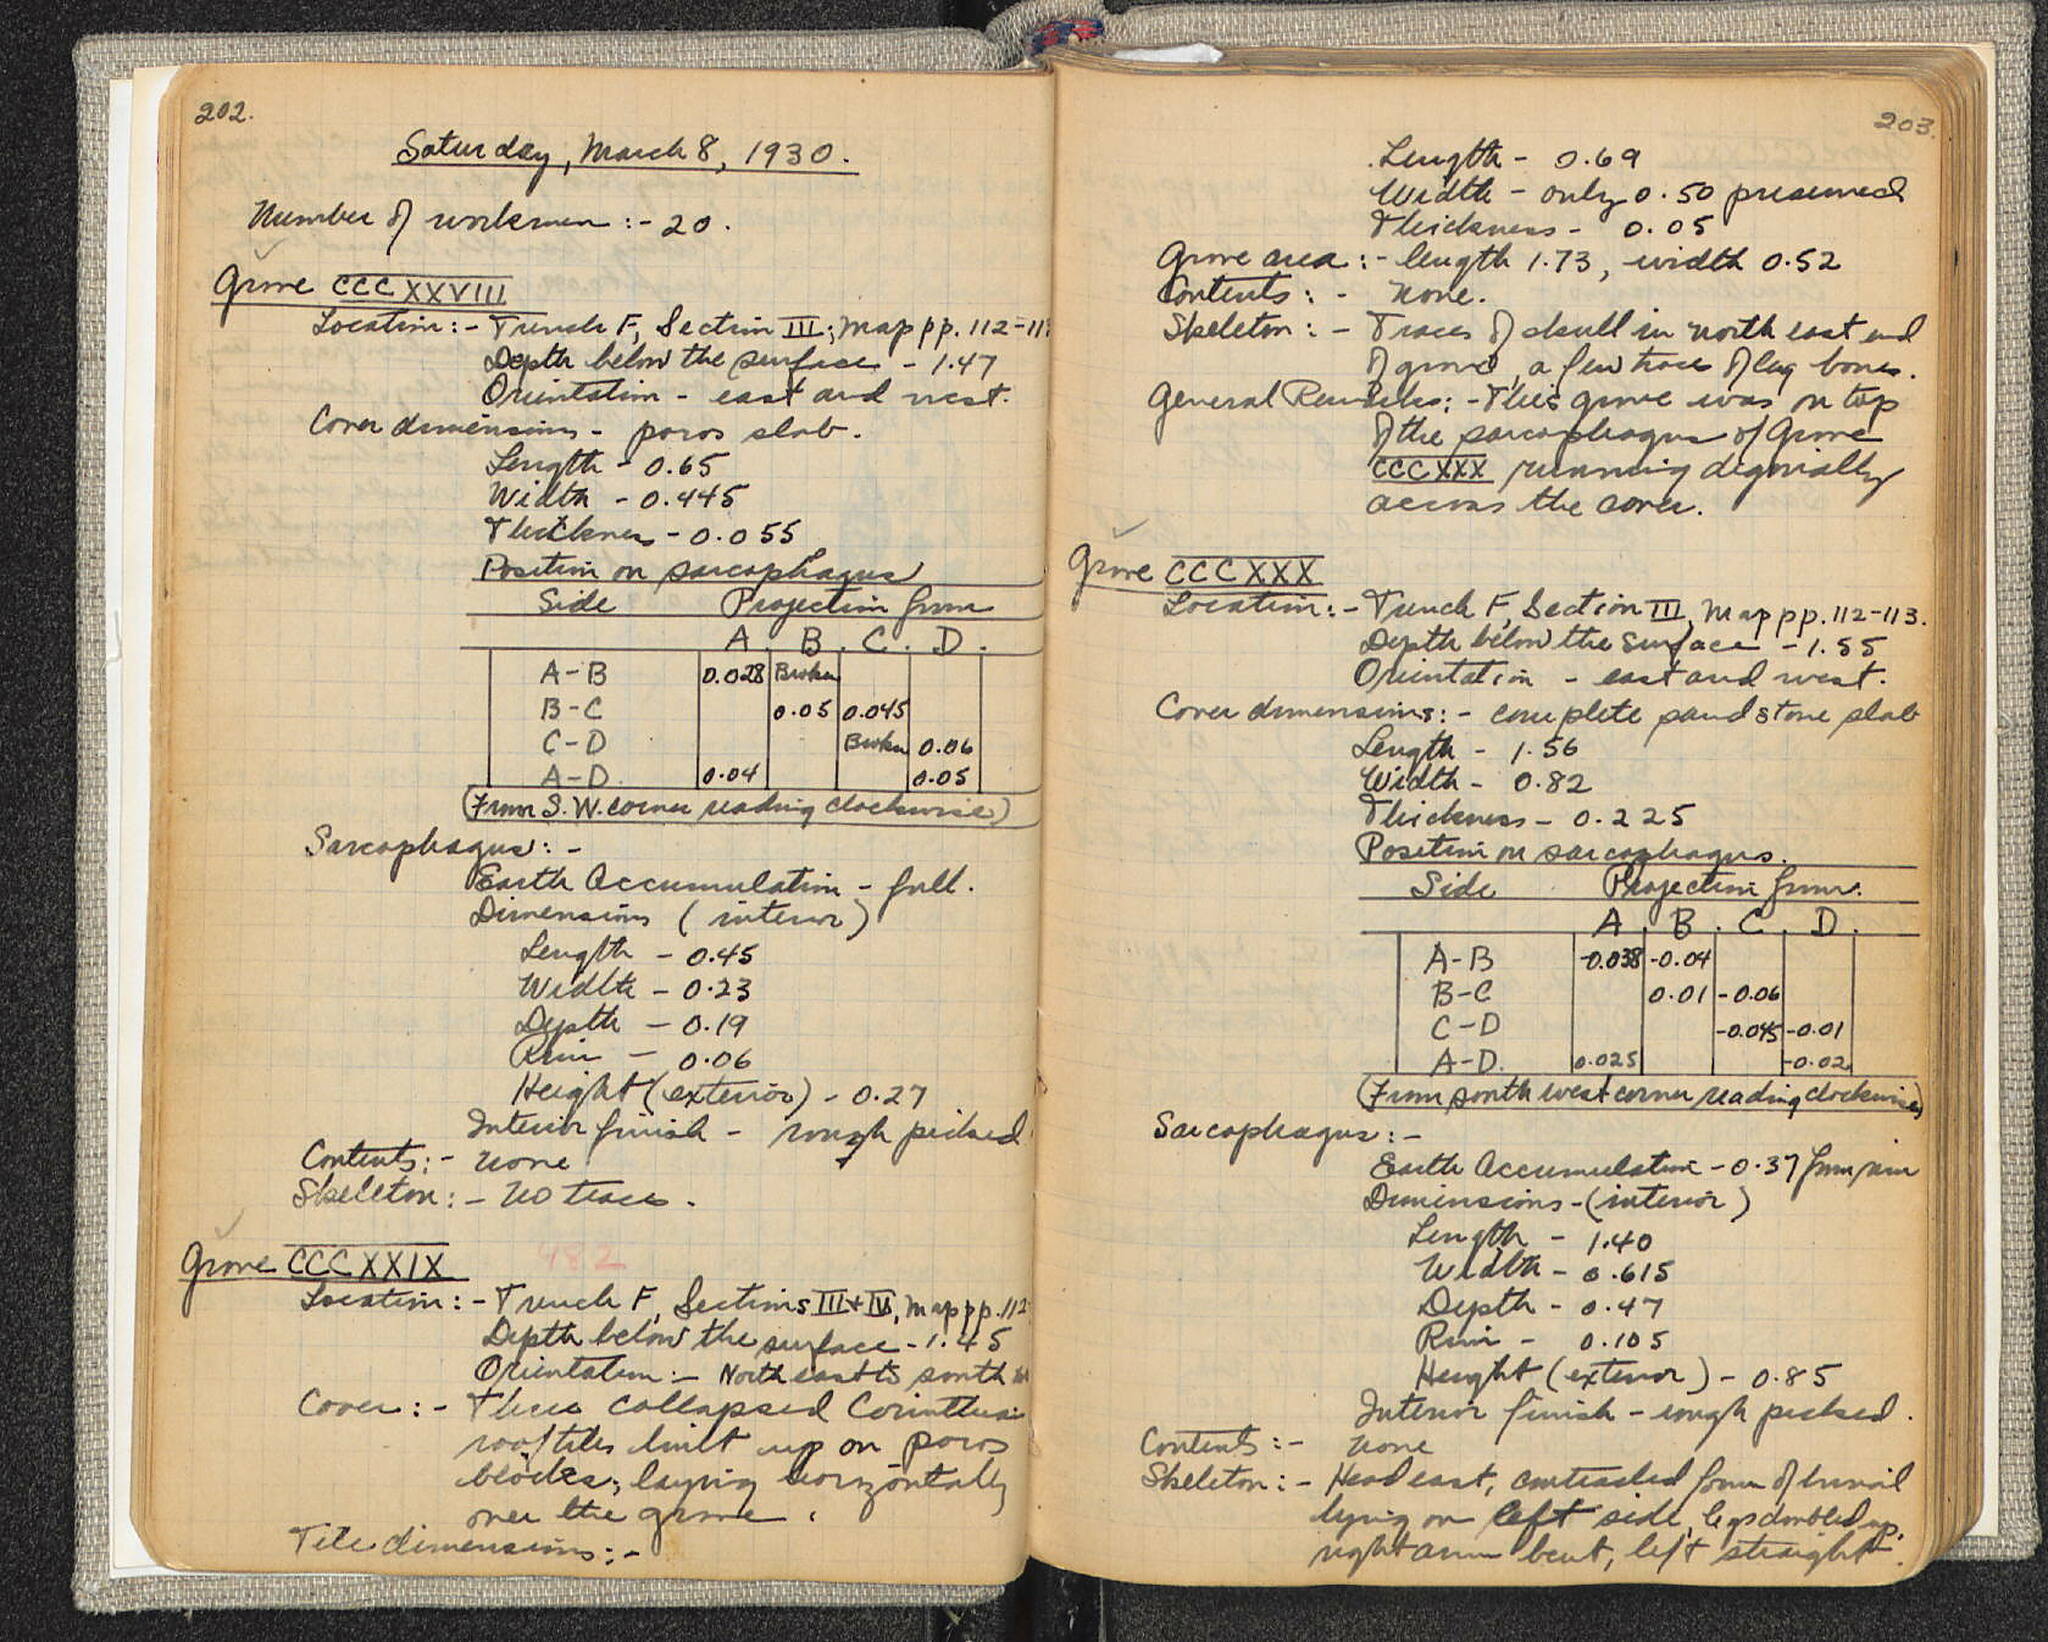 202.
Saturday, March 8, 1930.
Number of workmen :- 20.
Grave CCCXXVIII
Location :- Trench F, Section III; Map pp. 112-11
Depth below the surface - 1.47
Orientation - east and west.
Cover dimensions - poros slab.
Length - 0.65
Width - 0.445
Thickness - 0.055
Position on sarcophagus
Side Projection from
A. B. C. D.
A-B 0.028 Broken
B-C 0.05 0.045
C-D Broken 0.06
A-D. 0.04 0.05
(From S.W. corner reading clockwise)
Sarcophagus: -
Earth Accumulation - full.
Dimensions (interior)
Length - 0.45
Width - 0.23
Depth - 0.19
Rim - 0.06
Height (exterior) - 0.27
Interior finish - rough picked
Contents: - none
Skeleton: - No traces.
482
Grave CCCXXIX
Location: - Trench F, Sections III + IV, Map pp. 112
Depth below the surface - 1.45
Orientation :- North east to south
Cover: - Three collapsed Corinthian
roof tiles built up on poros
blocks; laying horizontally
over the grave.
Tile dimensions: -
203.
Length - 0.69
Width - only 0.50 preserved
Thickness - 0.05
Grave area :- length 1.73, width 0.52
Contents: - None.
Skeleton: - Traces of skull in north east end
of grave, a few traces of leg bones.
General Remarks: - This grave was on top
of the sarcophagus of Grave
CCCXXX running digonially
across the cover.
Grave CCCXXX
Location: - Trench F, Section III, Map pp. 112-113.
Depth below the surface - 1.55
Orientation - east and west.
Cover dimensions: - complete sandstone slab
Length - 1.56
Width - 0.82
Thickness - 0.225
Position on sarcophagus.
Side Projection from.
A. B. C. D.
A-B -0.038 -0.04
B-C 0.01 -0.06
C-D -0.045 -0.01
A-D. 0.025 -0.02
(From south west corner reading clockwise)
Sarcophagus: -
Earth Accumulation - 0.37 from rim
Dimensions - (interior)
Length - 1.40
Width - 0.615
Depth - 0.47
Rim - 0.105
Height (exterior) - 0.85
Interior finish - rough picked.
Contents: - none
Skeleton: - Head east, contracted form of burial
lying on left side, legs doubled up,
right arm bent, left straight.